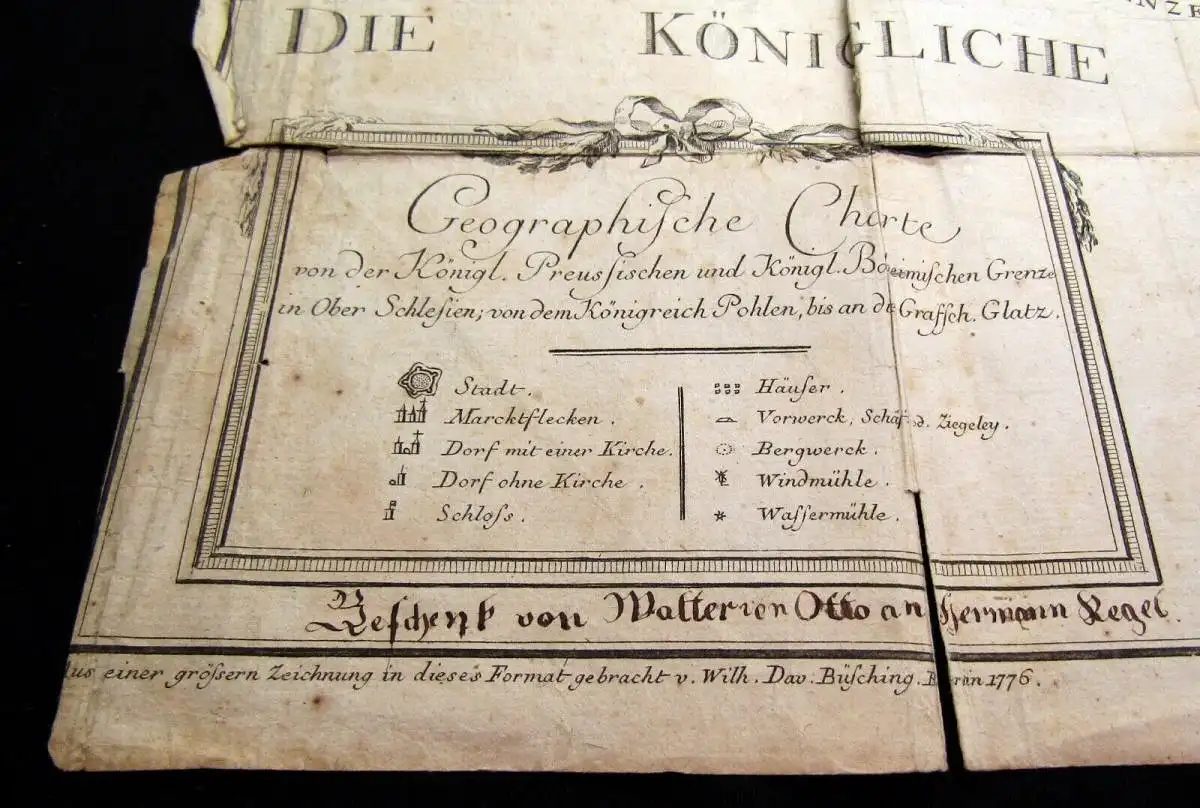 NZE
DIE KÖNIGLICHE
Geographische Charte
von der Königl. Preussischen und Königl. Böeimischen Grenze
in Ober Schlesien; von dem Königreich Pohlen, bis an die Graffsch. Glatz.
Stadt.
Marcktflecken.
Dorf mit einer Kirche.
Dorf ohne Kirche.
Schloss.
Häuser.
Vorwerck, Schäf. od. Ziegeley.
Bergwerck.
Windmühle.
Wassermühle.
Geschenk von Walter von Otto an Hermann Regel.
Aus einer grössern Zeichnung in dieses Format gebracht v. Wilh. Dav. Büsching. Berlin 1776.